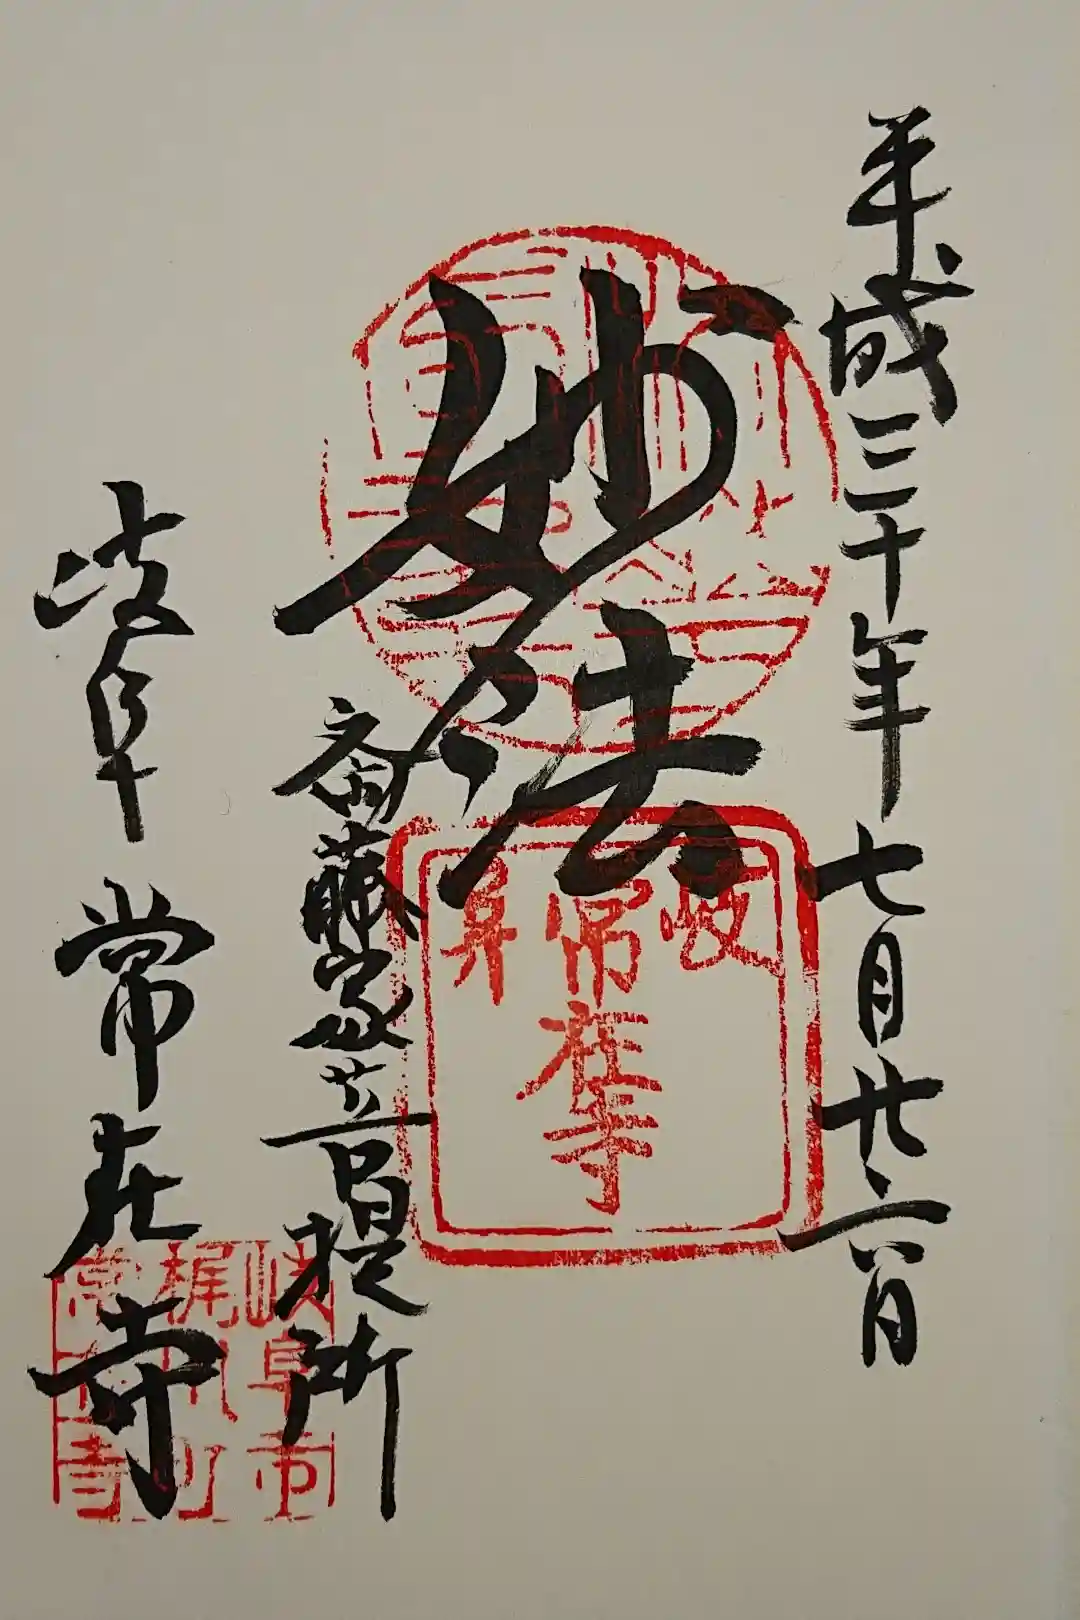 平成三十年七月廿二日
妙法
斎藤家菩提所
岐阜 常在寺
岐 常在寺
岐阜市
梶川町
常在寺